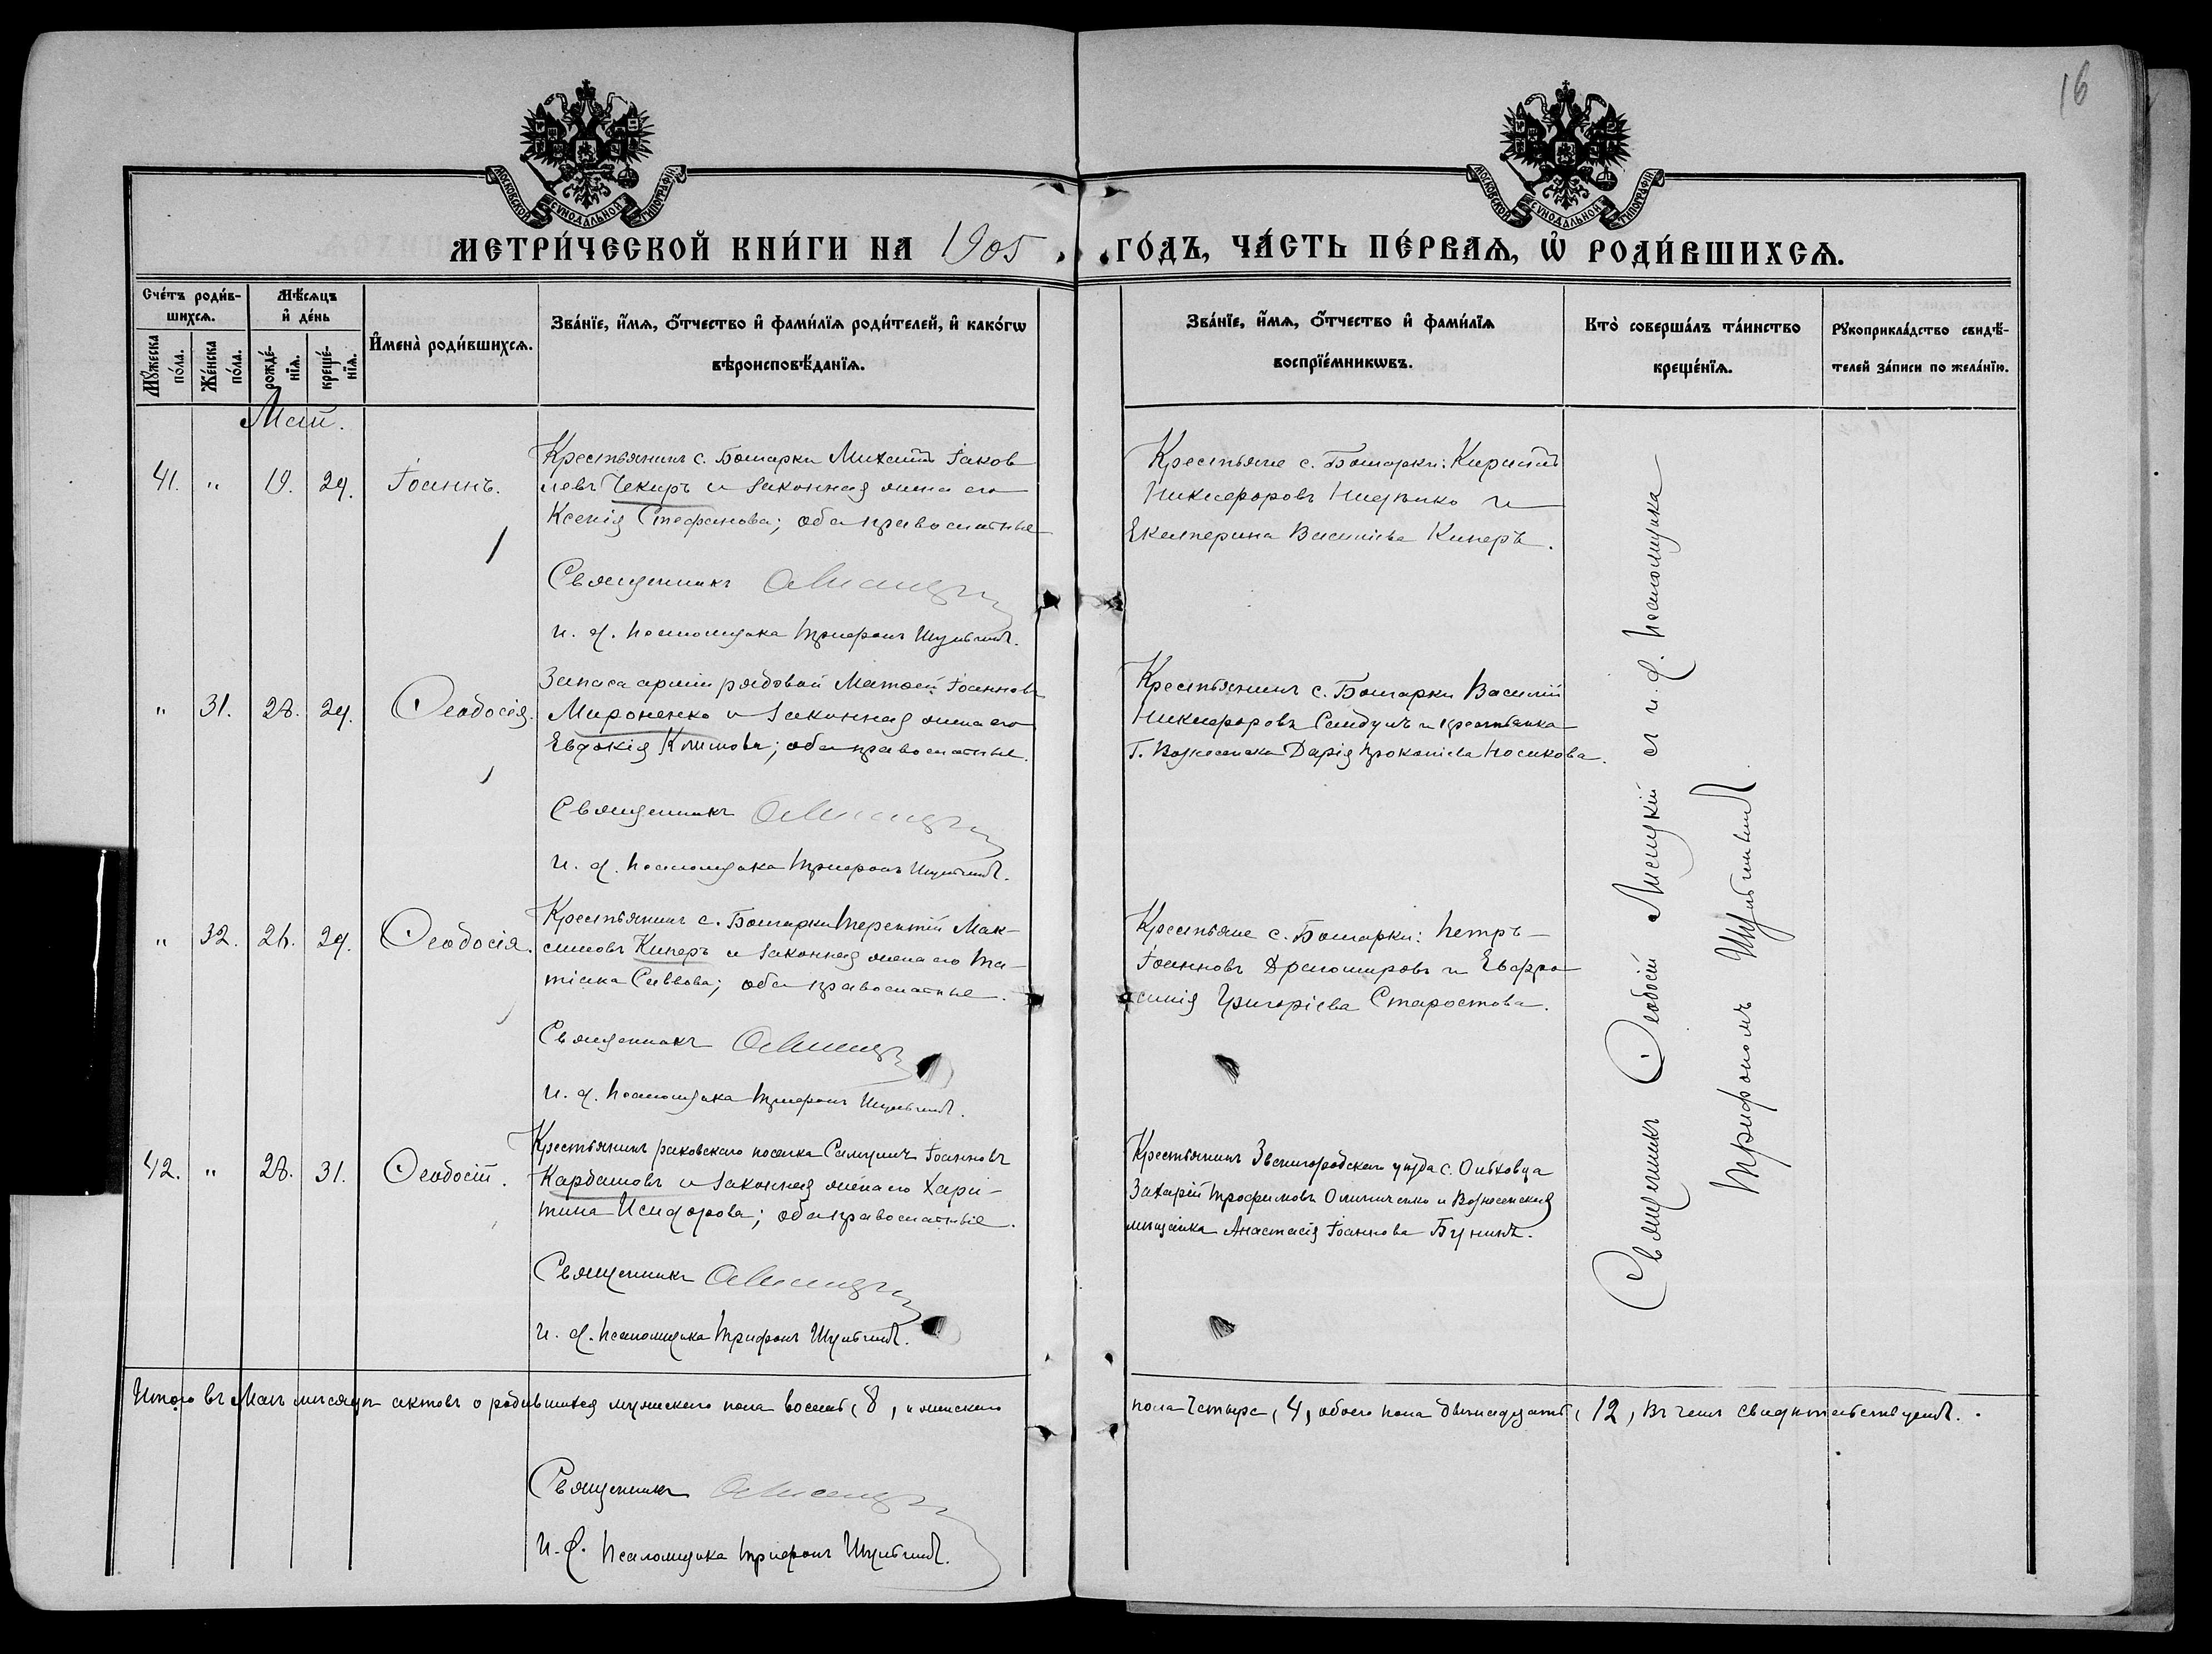 16
МОСКОВСКОЙ СѴНОДАЛЬНОЙ ТИПОГРАФІИ
МОСКОВСКОЙ СѴНОДАЛЬНОЙ ТИПОГРАФІИ
МЕТРИ́ЧЕСКОЙ КНИ́ГИ НА 1905 ГО́ДЪ, ЧА́СТЬ ПЕ́РВАѦ, Ѡ҆ РОДИ́ВШИХСѦ.
Сче́тъ роди́в-
шихсѧ.
Мꙋ́жеска по́ла.
Же́нска по́ла.
Мѣ́сѧцъ
и҆ де́нь
рожде́-
нїѧ.
креще́-
нїѧ.
И҆мена̀ роди́вшихсѧ.
Зва́нїе, и҆́мѧ, ѻ҆́тчество и҆ фами́лїѧ роди́телей, и҆ како́гѡ
вѣроисповѣ́данїѧ.
Зва́нїе, и҆́мѧ, ѻ҆́тчество и҆ фами́лїѧ
воспрїе́мникѡвъ.
Кто̀ соверша́лъ та́инство
креще́нїѧ.
Рꙋкоприкла́дство свидѣ́-
телей за́писи по жела́нїю.
Май.
41. " 19. 29. Іоаннъ.
Крестьянинъ с. Болгарки Михаилъ Іаков
левъ Чекиръ и законная жена его
Ксенія Стефанова; оба православные
Священникъ
и. д. псаломщика Трифонъ
Крестьяне с. Болгарки: Кириллъ
Никифоровъ и
Екатерина Василіева Киперъ.
" 31. 28. 29. Ѳеодосія.
Запаса арміи рядовой Матѳей Іоанновъ
Мироненко и законная жена его
Евдокія Климова; оба православные.
Священникъ
и. д. псаломщика Трифонъ
Крестьянинъ с. Болгарки Василій
Никифоровъ и крестьянка
г. Вознесенска Дарія Прокопіева Носикова.
" 32. 26. 29. Ѳеодосія.
Крестьянинъ с. Болгарки Терентій Мак-
симовъ Киперъ и законная жена его Та-
тіана Саввова; оба православные.
Священникъ
и. д. псаломщика Трифонъ
Крестьяне с. Болгарки: Петръ
Іоанновъ Драгомировъ и Евфро
синія Григоріева Старостова.
42. " 28. 31. Ѳеодосій.
Крестьянинъ раковскаго поселка Самуилъ Іоанновъ
Кардашовъ и законная жена его Хари-
тина Исидорова; оба православные.
Священникъ
и. д. псаломщика Трифонъ
Крестьянинъ Звенигородскаго уѣзда с.
Захарій Трофимовъ и Вознесенская
мѣщанка Анастасія Іоаннова
Священникъ Ѳеодосій Лисицкій съ и. д. псаломщика
Трифономъ
Итого въ Маѣ мѣсяцѣ актовъ о родившихся мужескаго пола восемь, 8, и женскаго
пола четыре, 4, обоего пола двѣнадцать, 12, въ чемъ свидѣтельствуемъ.
Священникъ
И. д. псаломщика Трифонъ